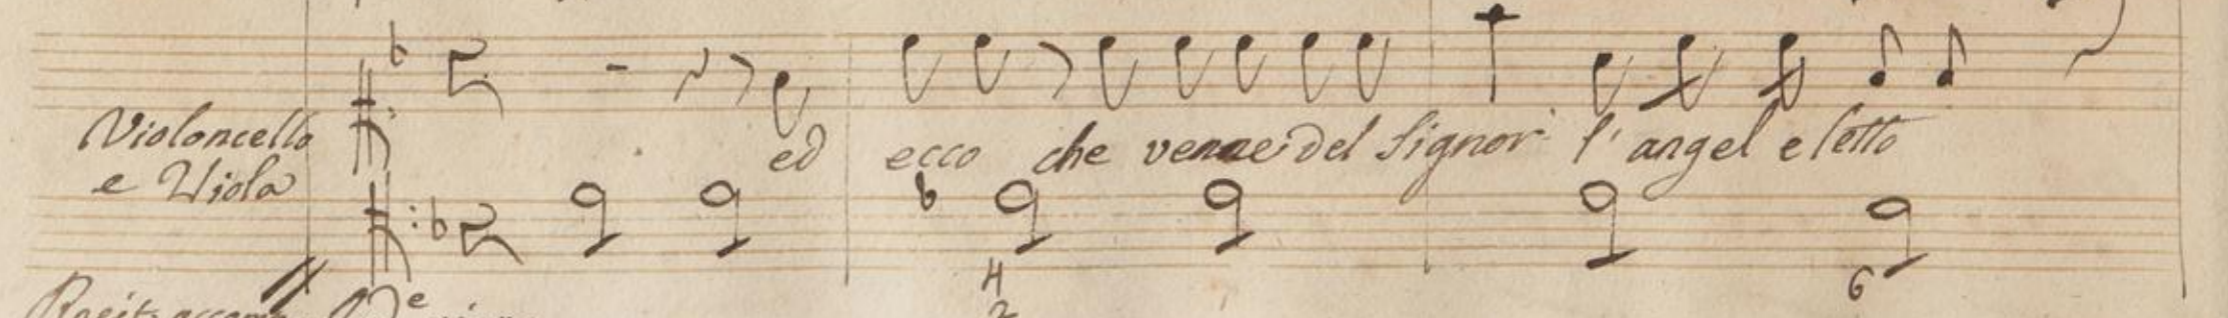 Violoncello
e Viola
ed ecco che venne del Signor l' angel eletto
4
2
6